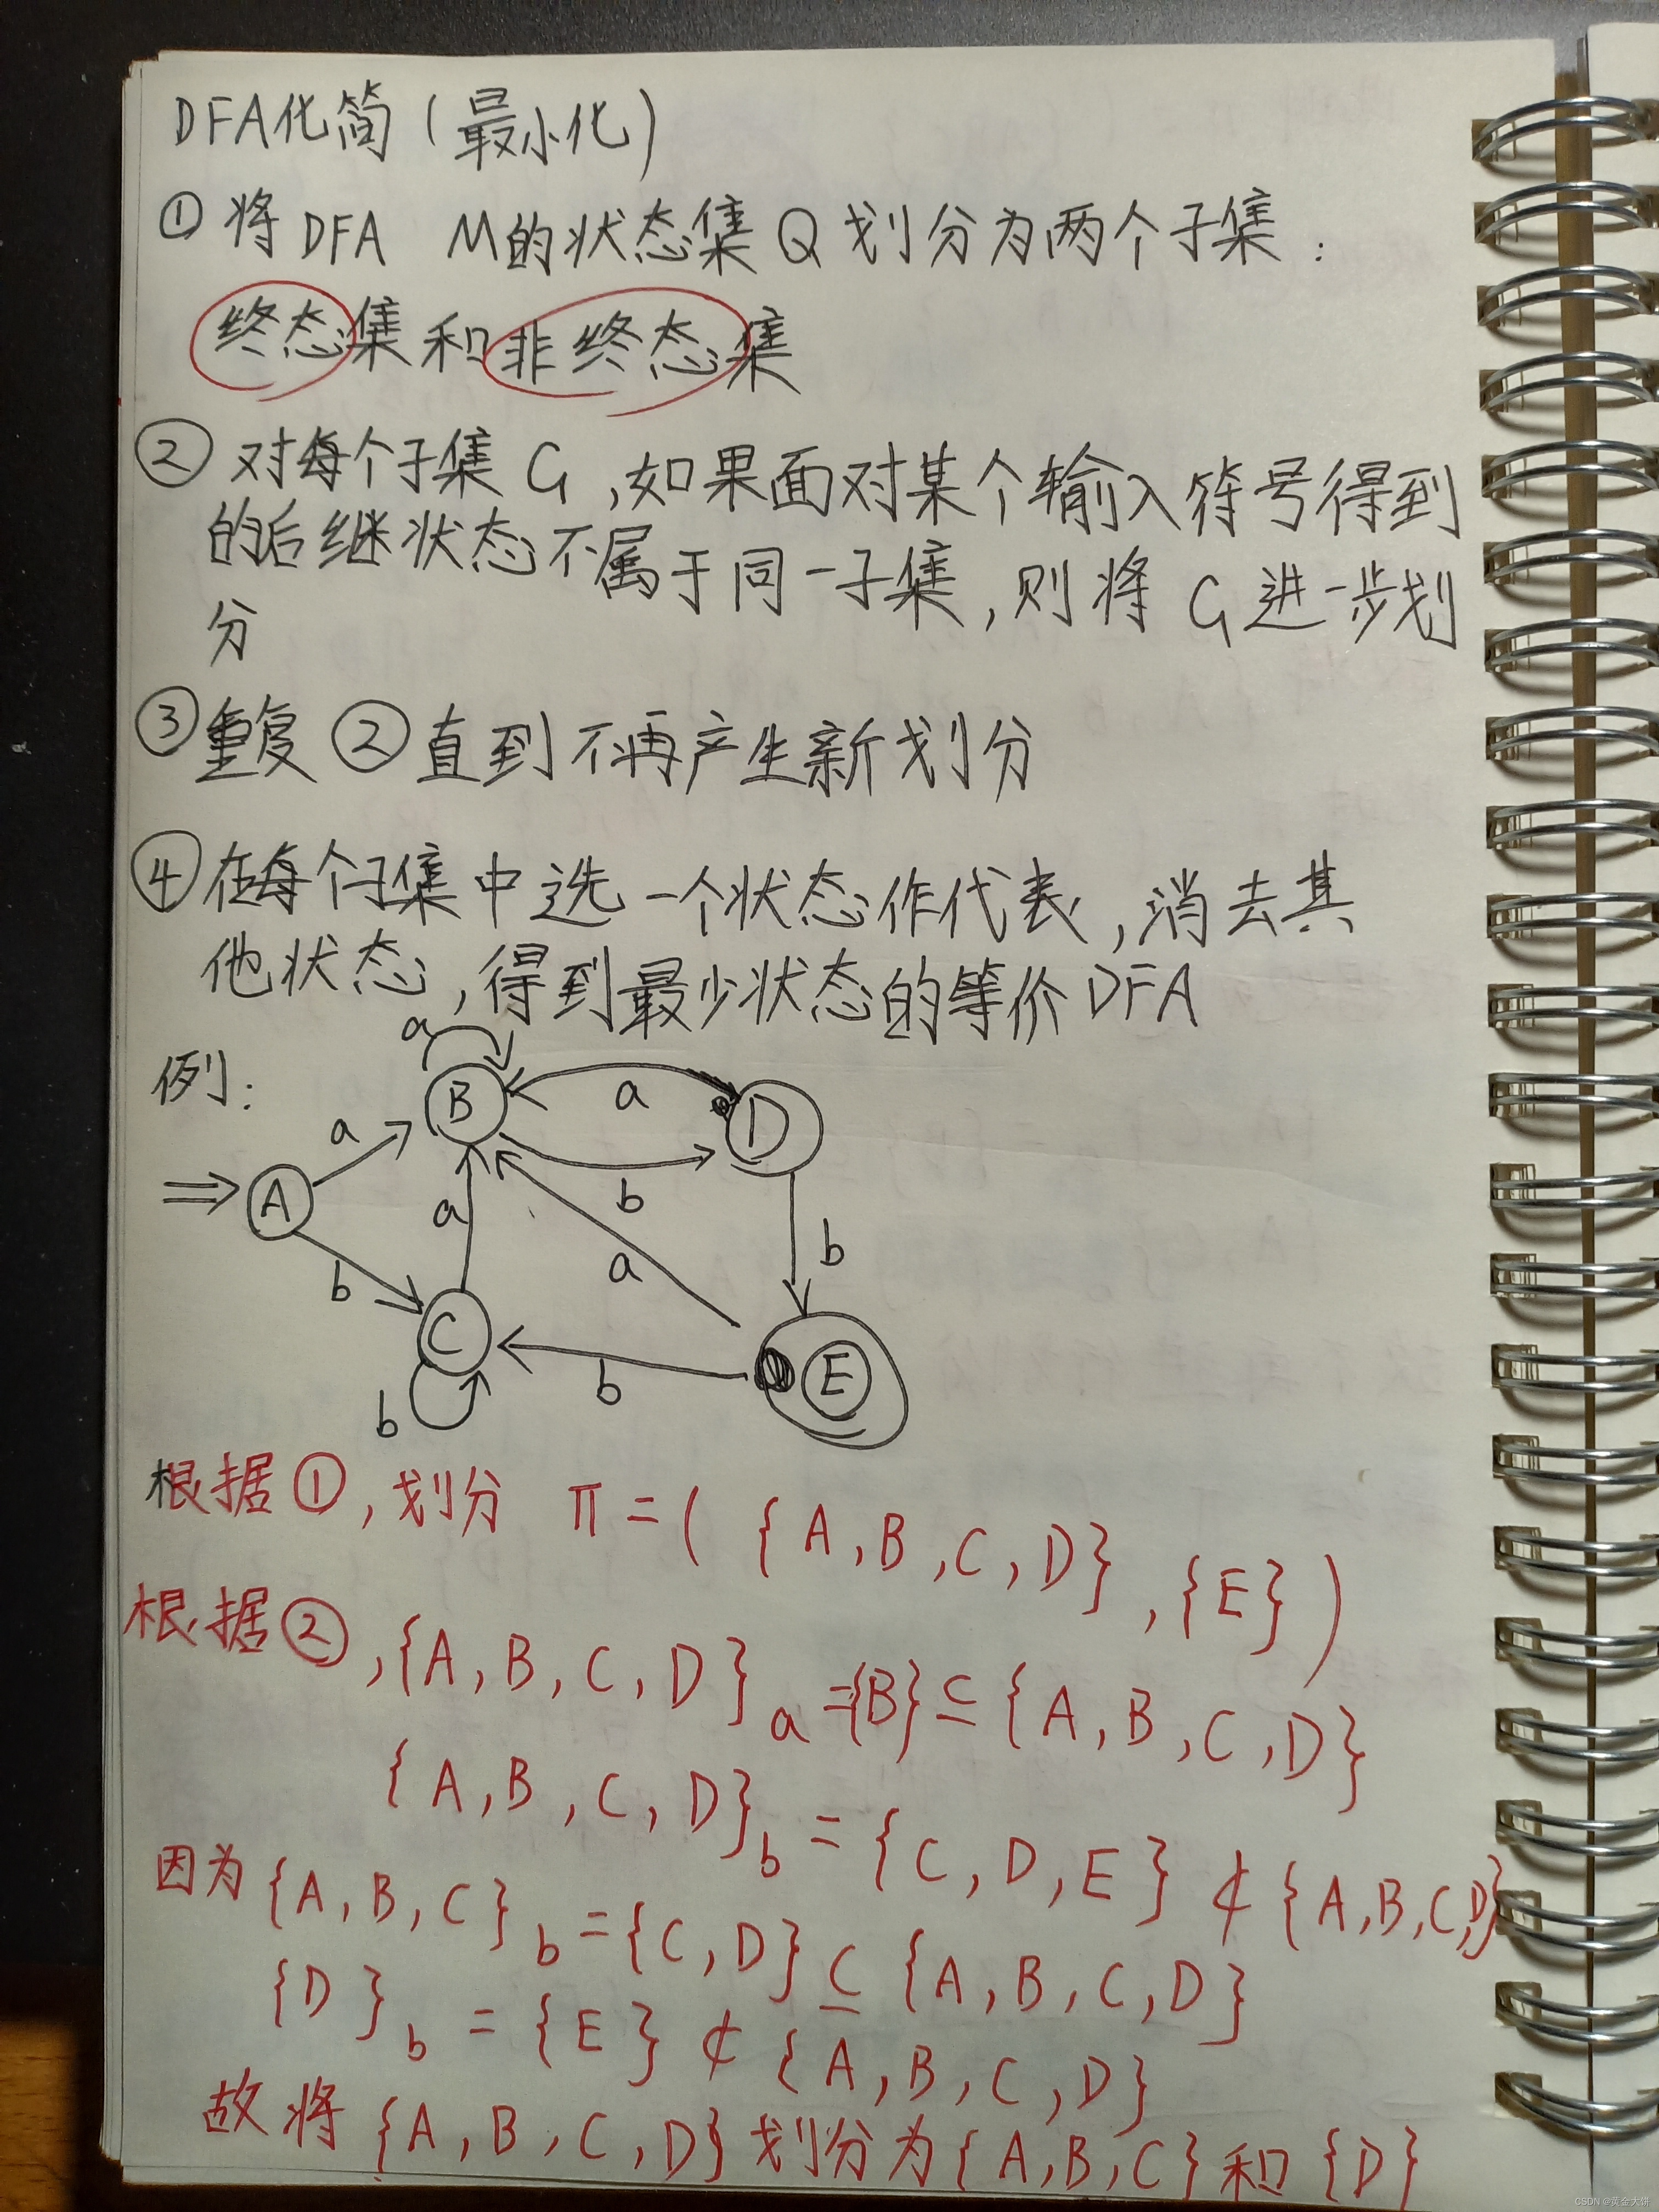 DFA化简(最小化)
① 将DFA M的状态集Q划分为两个子集:
终态集和非终态集
② 对每个子集G,如果面对某个输入符号得到
的后继状态不属于同一子集,则将G进一步划
分
③重复②直到不再产生新划分
④在每个子集中选一个状态作代表,消去其
他状态,得到最少状态的等价DFA
例:
a
B
a
D
a
b
A
a
b
a
b
C
b
E
b
根据①,划分 π=({A,B,C,D},{E})
根据②,{A,B,C,D}a={B}⊆{A,B,C,D}
{A,B,C,D}b={C,D,E}⊄{A,B,C,D}
因为{A,B,C}b={C,D}⊆{A,B,C,D}
{D}b={E}⊄{A,B,C,D}
故将{A,B,C,D}划分为{A,B,C}和{D}
CSDN @黄金大饼